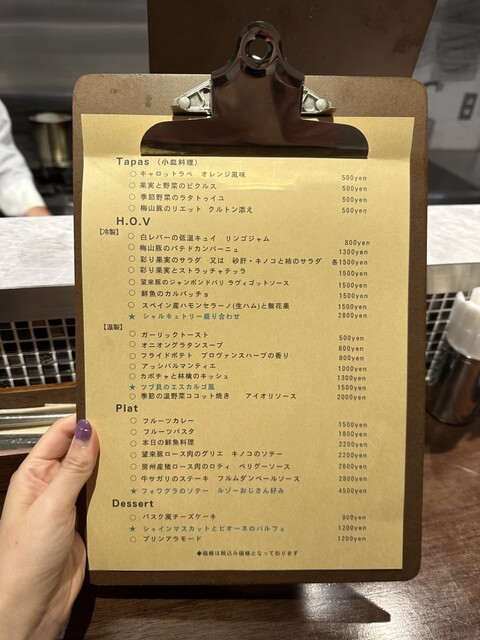 Tapas (小皿料理)
○ キャロットラペ オレンジ風味 500yen
○ 果実と野菜のピクルス 500yen
○ 季節野菜のラタトゥイユ 500yen
○ 梅山豚のリエット クルトン添え 500yen
H.O.V
【冷製】
○ 白レバーの低温キュイ リンゴジャム 800yen
○ 梅山豚のパテドカンパーニュ 1300yen
○ 彩り果実のサラダ 又は 砂肝・キノコと柿のサラダ 各1500yen
○ 彩り果実とストラッチャテッラ 1500yen
○ 望来豚のジャンボンドパリ ラヴィゴットソース 1500yen
○ 鮮魚のカルパッチョ 1500yen
○ スペイン産ハモンセラーノ(生ハム)と無花果 1500yen
★ シャルキュトリー盛り合わせ 2800yen
【温製】
○ ガーリックトースト 500yen
○ オニオングラタンスープ 800yen
○ フライドポテト プロヴァンスハーブの香り 800yen
○ アッシパルマンティエ 1000yen
○ カボチャと林檎のキッシュ 1300yen
★ ツブ貝のエスカルゴ風 1500yen
○ 季節の温野菜ココット焼き アイオリソース 2000yen
Plat
○ フルーツカレー 1500yen
○ フルーツパスタ 1800yen
○ 本日の鮮魚料理 2200yen
○ 望来豚ロース肉のグリエ キノコのソテー 2200yen
○ 房州産猪ロース肉のロティ ペリグーソース 2800yen
○ 牛サガリのステーキ フルムダンベールソース 2800yen
★ フォワグラのソテー ルゾーおじさん好み 4500yen
Dessert
○ バスク風チーズケーキ 900yen
★ シャインマスカットとピオーネのパルフェ 1200yen
○ プリンアラモード 1200yen
◆価格は税込み価格となっております